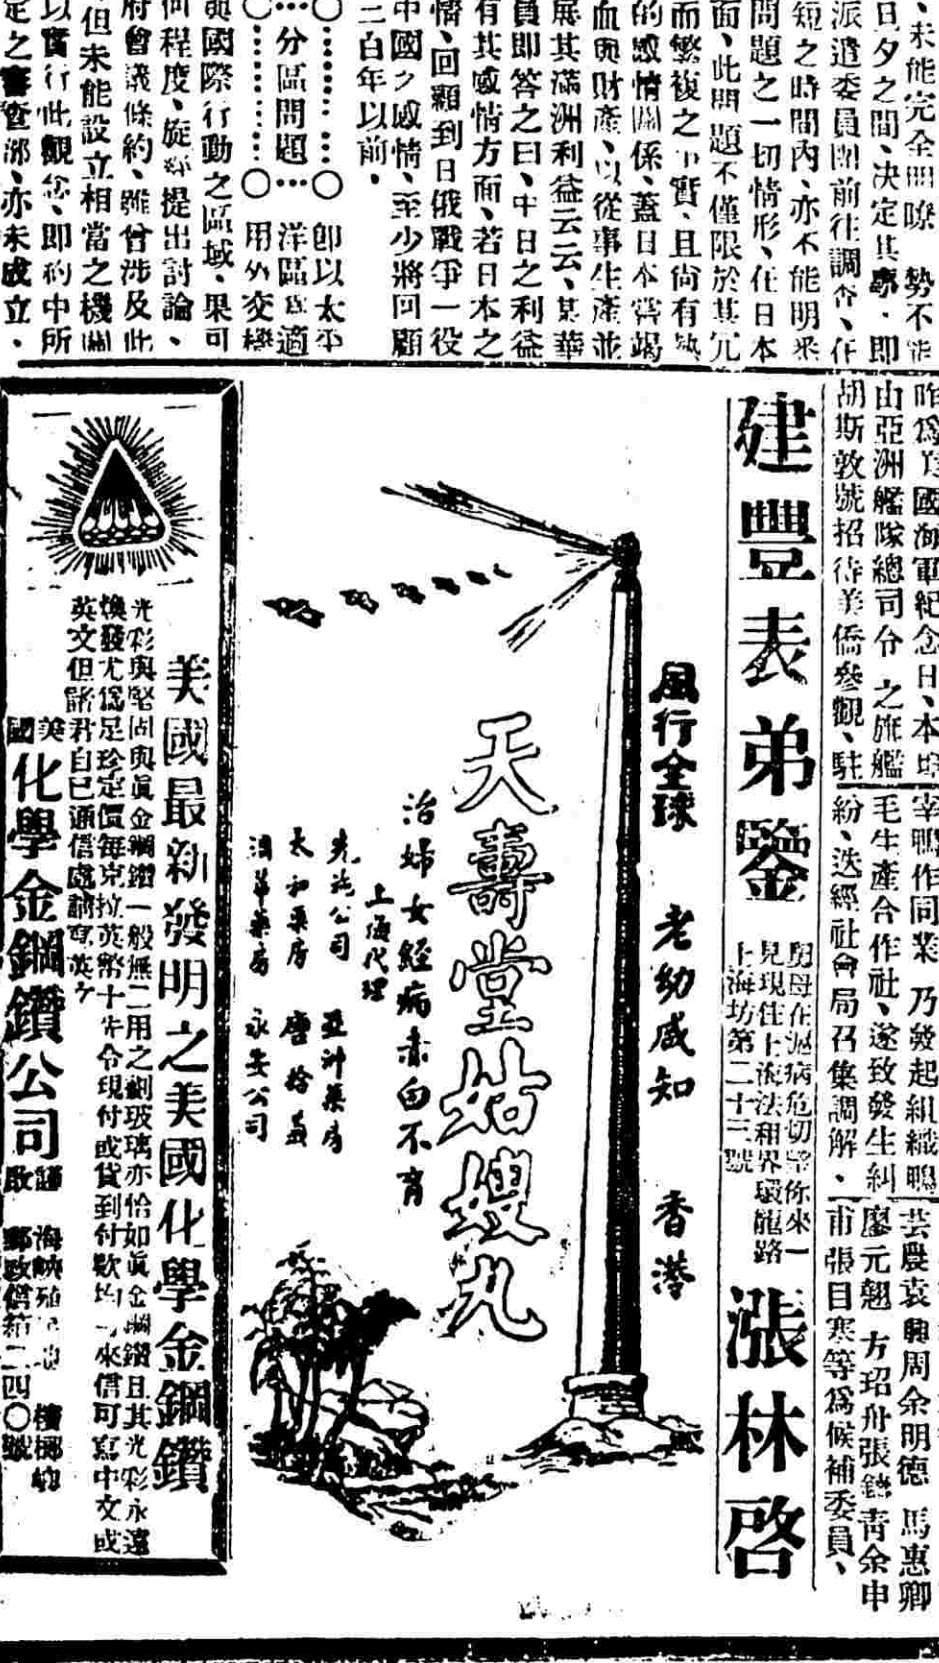 、未能完全明瞭　勢不能
日夕之間、決定其事、即
派遣委員團前往調查、在
短之時間內、亦不能明悉
問題之一切情形、在日本
面、此問題不僅限於其冗
而繁複之事實、且尚有熱
的感情關係、蓋日本嘗竭
血與財產、以從事生產並
展其滿洲利益云云、某華
員即答之曰、中日之利益
有其感情方面、若日本之
情、回顧到日俄戰爭一役
中國之感情、至少將回顧
二百年以前、
〇………〇　卽以太平
…分區問題…　洋區爲適
〇………〇　用外交機
與國際行動之區域、果可
何程度、旋經提出討論、
府會議條約、雖曾涉及此
但未能設立相當之機關
以實行此觀念、即約中所
定之審查部、亦未成立、
昨爲 國海軍紀念日、本埠
由亞洲艦隊總司令 之旗艦
胡斯敦號招待美僑參觀、駐
宰鴨作同業 乃發起組織鴨
毛生產合作社、遂致發生糾
紛、迭經社會局召集調解、
芸農袁興周余明德 馬惠卿
廖元翹 方玿舟張鏡青余申
甫張目寒等爲候補委員、
建豐表弟鑒
母在滬病危切望你來一
見現住上海法租界環龍路
上海坊第二十三號
漲林啓
風行全球　老幼咸知　香港
天壽堂姑嫂丸
治婦女經病赤白不育
上海代理
先施公司　亞洲藥房
太和藥房　唐拾義
藥房　永安公司
美國最新發明之美國化學金鋼鑽
光彩與堅固與眞金鋼鑽一般無二用之劃玻璃亦恰如眞金鋼鑽且其光彩永遠
煥發尤爲足珍定價每克拉英幣十 令現付或貨到付欵均 來信可寫中文或
英文但請君自己通信處請寫英文
美國化學金鋼鑽公司謹啟
海峽殖 檳榔
郵政信箱二四〇號